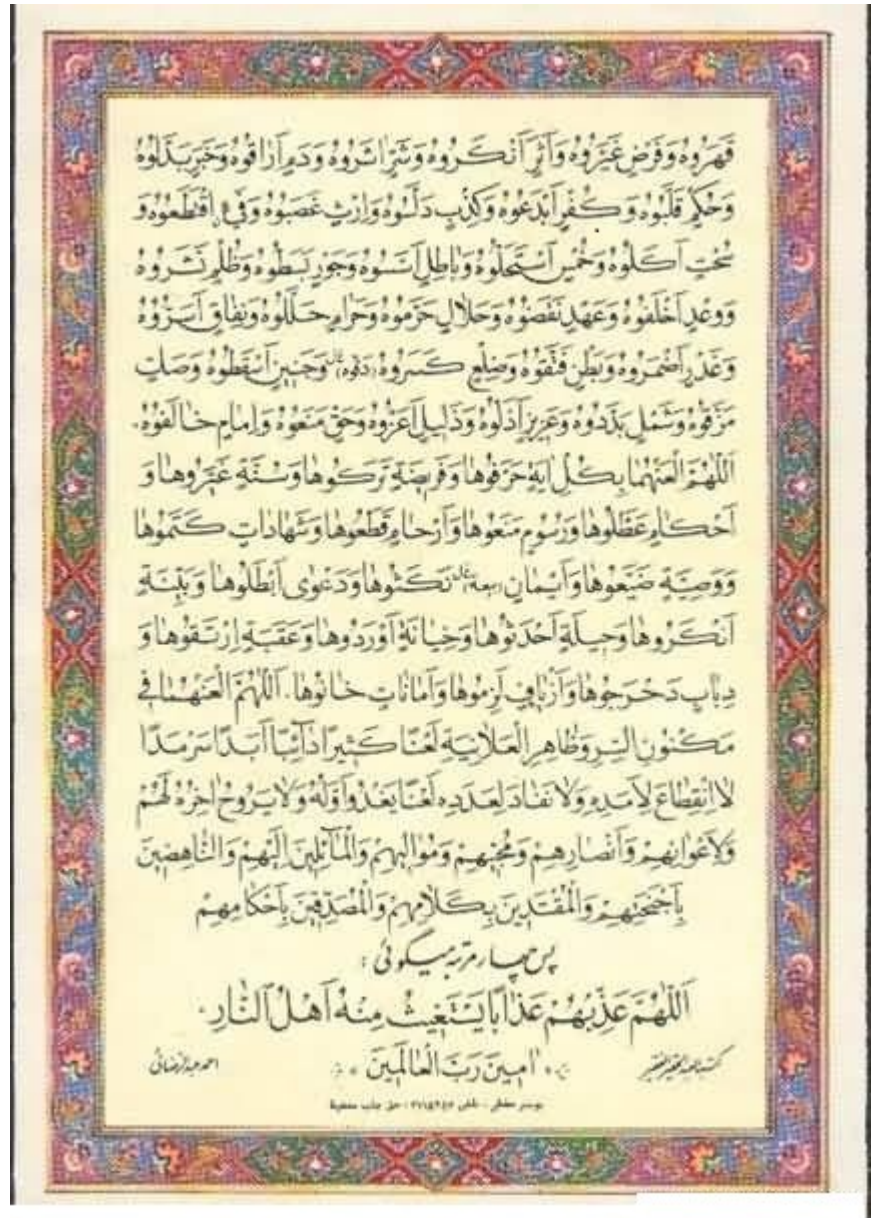 قَهَرُوهُ وَفَرْضٍ غَيَّرُوهُ وَاَثَرٍ اَنْكَرُوهُ وَشَرٍّ اثَرُوهُ وَدَمٍ اَرٰاقُوهُ وَخَبَرٍ بَدَّلُوهُ
وَحُكْمٍ قَلَّبُوهُ وَكُفْرٍ اَبْدَعُوهُ وَكِذْبٍ دَلَّسُوهُ وَاِرْثٍ غَصَبُوهُ وَفَيْءٍ اِقْتَطَعُوهُ وَ
سُحْتٍ اَكَلُوهُ وَخُمْسٍ اَسْتَحَلُّوهُ وَبٰاطِلٍ اَسَّسُوهُ وَجَوْرٍ بَسَطُوهُ وَظُلْمٍ نَشَرُوهُ
وَوَعْدٍ اَخْلَفُوهُ وَعَهْدٍ نَقَضُوهُ وَحَلٰالٍ حَرَّمُوهُ وَحَرٰامٍ حَلَّلُوهُ وَنِفٰاقٍ اَسَرُّوهُ
وَغَدْرٍ اَضْمَرُوهُ وَبَطْنٍ فَتَقُوهُ وَضِلْعٍ كَسَرُوهُ (دَقُّوهُ) وَجَنينٍ اَسْقَطُوهُ وَصَكٍّ
مَزَّقُوهُ وَشَمْلٍ بَدَّدُوهُ وَعَزيزٍ اَذَلُّوهُ وَذَليلٍ اَعَزُّوهُ وَحَقٍّ مَنَعُوهُ وَاِمٰامٍ خٰالَفُوهُ.
اَللّٰهُمَّ الْعَنْهُمٰا بِكُلِّ ايَةٍ حَرَّفُوهٰا وَفَريضَةٍ تَرَكُوهٰا وَسُنَّةٍ غَيَّرُوهٰا وَ
اَحْكٰامٍ عَطَّلُوهٰا وَرُسُومٍ مَنَعُوهٰا وَاَرْحٰامٍ قَطَعُوهٰا وَشَهٰادٰاتٍ كَتَمُوهٰا
وَوَصِيَّةٍ ضَيَّعُوهٰا وَاَيْمٰانٍ (بيعة) نَكَثُوهٰا وَدَعْوٰى اَبْطَلُوهٰا وَبَيِّنَةٍ
اَنْكَرُوهٰا وَحيلَةٍ اَحْدَثُوهٰا وَخِيٰانَةٍ اَوْرَدُوهٰا وَعَقَبَةٍ اِرْتَقَوْهٰا وَ
دِبٰابٍ دَحْرَجُوهٰا وَاَزْيٰافٍ لَزِمُوهٰا وَاَمٰانٰاتٍ خٰانُوهٰا. اَللّٰهُمَّ الْعَنْهُمٰا في
مَكْنُونِ السِّرِّ وَظٰاهِرِ الْعَلٰانِيَةِ لَعْنًا كَثيرًا دٰائِبًا اَبَدًا سَرْمَدًا
لَااِنْقِطٰاعَ لِاَمَدِهِ وَلٰا نَفٰادَ لِعَدَدِهِ لَعْنًا يَغْدُو اَوَّلُهُ وَلٰا يَرُوحُ اخِرُهُ لَهُمْ
وَلِاَعْوٰانِهِمْ وَاَنْصٰارِهِمْ وَمُحِبّيهِمْ وَمُوٰاليهِمْ وَالْمٰائِلينَ اِلَيْهِمْ وَالنّٰاهِضينَ
بِاَجْنِحَتِهِمْ وَالْمُقْتَدينَ بِكَلٰامِهِمْ وَالْمُصَدِّقينَ بِاَحْكٰامِهِمْ
پس چهار مرتبه میگوئی :
اَللّٰهُمَّ عَذِّبْهُمْ عَذٰابًا يَسْتَغيثُ مِنْهُ اَهْلُ النّٰارِ.
امينَ رَبَّ الْعٰالَمينَ